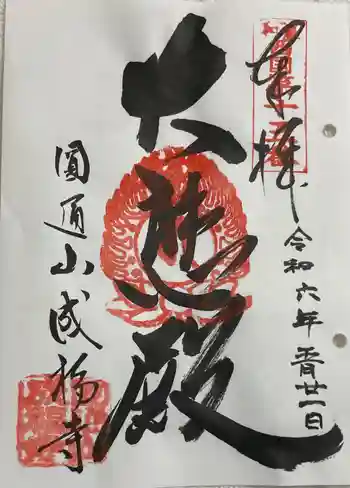 奉拝
令和六年 廿一日
大悲殿
圓通山成福寺